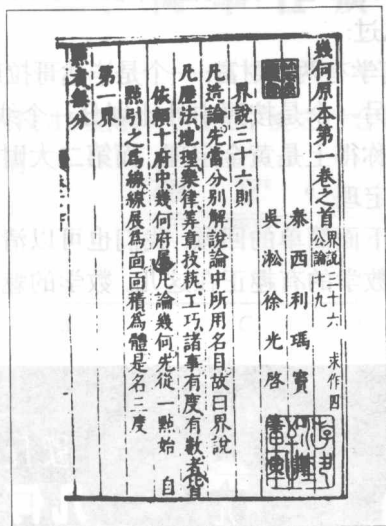 幾何原本第一卷之首 界說三十六 求作四
公論十九
泰西利瑪竇
吳淞徐光啓
界說三十六則
凡造論先當分別解說論中所用名目故曰界說
凡曆法地理樂律算章技藝工巧諸事有度有數者皆
依賴十府中幾何府屬凡論幾何先從一點始 自
點引之為線線展為面面積為體是名三度
第一界
點者無分